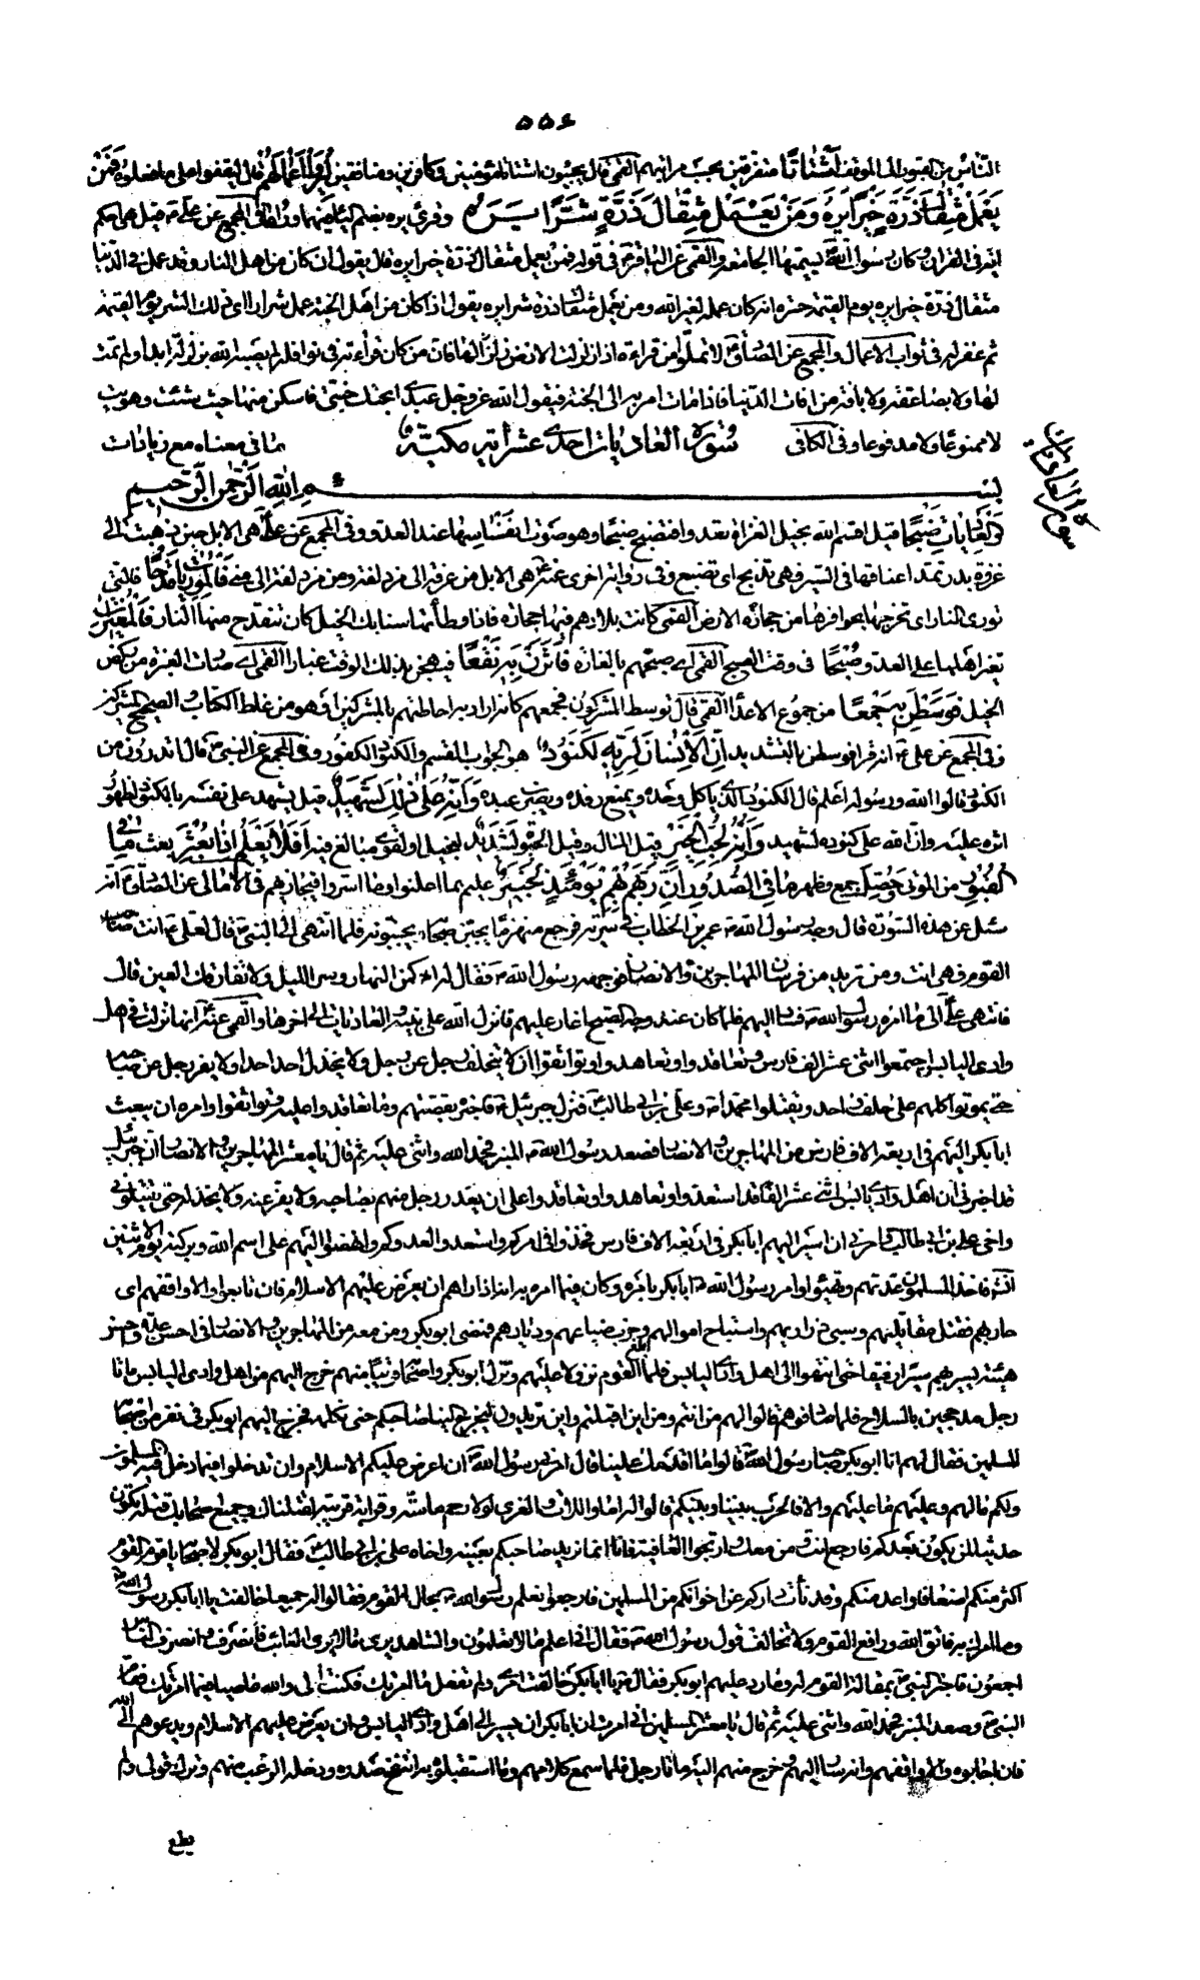 ٥٥٤
الناس من القبور الى الموقف أَشْتَاتًا متفرقين بحسب مراتبهم القمي قال يجيئون اشتاتا مؤمنين وكافرين ومنافقين لِيُرَوْا أَعْمَالَهُمْ قال ليقفوا على ما فعلوه فَمَنْ
يَعْمَلْ مِثْقَالَ ذَرَّةٍ خَيْرًا يَرَهُ وَمَنْ يَعْمَلْ مِثْقَالَ ذَرَّةٍ شَرًّا يَرَهُ وقرئ يره بضم الياء فيهما وفي المجمع عن علي ع قيل هي احكم
اية في القران وكان رسول الله ص يسميها الجامعة والقمي عن الباقر ع في قوله فمن يعمل مثقال ذرة خيرا يره قال يقول ان كان من اهل النار وقد عمل في الدنيا
مثقال ذرة خيرا يره يوم القيمة حسرة انه كان عمله لغير الله ومن يعمل مثقال ذرة شرا يره يقول اذا كان من اهل الجنة عمل شرا راى ذلك الشر يوم القيمة
ثم غفر له في ثواب الاعمال والمجمع عن الصادق ع لا تملوا من قراءة اذا زلزلت الارض زلزالها فان من كان قراءته في نوافله لم يصبه الله بزلزلة ابدا ولم يمت
بها ولا بصاعقة ولا بافة من افات الدنيا فاذا مات امر به الى الجنة فيقول الله عز وجل عبدي ابحتك جنتي فاسكن منها حيث شئت وهويت
لا ممنوعا ولا مدفوعا وفي الكافي سُورَة العاديات احدى عشر اية مكية ما في معناه مع زيادات
سورة العاديات
بِسْمِ اللهِ الرَّحْمٰنِ الرَّحِيمِ
وَالْعَادِيَاتِ ضَبْحًا قيل اقسم الله بخيل الغزاة تعدو فتضبح ضبحا وهو صوت انفاسها عند العدو وفي المجمع عن علي ع هي الابل حين ذهبت الى
غزوة بدر تمد اعناقها في السير وهي تذبح اي تضبع وفي رواية اخرى عنه ع هي الابل من عرفة الى مزدلفة ومن مزدلفة الى منى فَالْمُورِيَاتِ قَدْحًا فالتي
تورى النار اي تخرجها بحوافرها من حجارة الارض القمي كانت بلادهم فيها حجارة فاذا وطأتها سنابك الخيل كان تنقدح منها النار فَالْمُغِيرَاتِ
تغير اهلها على العدو صُبْحًا في وقت الصبح القمي اي صبحتهم بالغارة فَأَثَرْنَ بِهِ نَقْعًا فهيجن بذلك الوقت غبارا القمي اي ثارت الغبرة من ركض
الخيل فَوَسَطْنَ بِهِ جَمْعًا من جموع الاعداء القمي قال توسط المشركون بجمعهم كانه اراد به احاطتهم بالمشركين او هو من غلط الكتاب والصحيح المشركين
وفي المجمع عن علي ع انه قرأ فوسطن بالتشديد إِنَّ الْإِنْسَانَ لِرَبِّهِ لَكَنُودٌ هو الجواب للقسم والكنود الكفور وفي المجمع عن النبي ص قال اتدرون من
الكنود قالوا الله ورسوله اعلم قال الكنود الذي ياكل وحده ويمنع رفده ويضرب عبده وَإِنَّهُ عَلَى ذَلِكَ لَشَهِيدٌ قيل يشهد على نفسه بالكنود لظهور
اثره عليه وان الله على كنوده لشهيد وَإِنَّهُ لِحُبِّ الْخَيْرِ قيل المال وقيل الحق لَشَدِيدٌ لبخيل او لقوى مبالغ فيه أَفَلَا يَعْلَمُ إِذَا بُعْثِرَ بعث مَا فِي
الْقُبُورِ من الموتى وَحُصِّلَ جمع وظهر مَا فِي الصُّدُورِ إِنَّ رَبَّهُمْ بِهِمْ يَوْمَئِذٍ لَخَبِيرٌ عليم بما اعلنوا وما اسروا فيجازيهم في الامالي عن الصادق ع انه
سئل عن هذه السورة قال وجه رسول الله ص عمر بن الخطاب في سرية فرجع منهزما يجبن اصحابه ويجبنونه فلما انتهى الى النبي ص قال لعلي ع انت صاحب
القوم فهيئ انت ومن تريد من فرسان المهاجرين والانصار فوجهه رسول الله ص فقال له اكمن النهار وسر الليل ولا تفارقك العين قال
فانتهى علي ع الى ما امره رسول الله ص فسار اليهم فلما كان عند وجه الصبح اغار عليهم فانزل الله على نبيه ص والعاديات الى اخرها والقمي عنه ع انها نزلت في اهل
وادي اليابس اجتمعوا اثنى عشر الف فارس وتعاقدوا وتعاهدوا وتواثقوا ان لا يتخلف رجل عن رجل ولا يخذل احد احدا ولا يفر رجل عن صاحبه
حتى يموتوا كلهم على خلف واحد ويقتلوا محمدا ص وعلي بن ابي طالب ع فنزل جبرئيل ع فاخبره بقصتهم وما تعاقدوا عليه وتواثقوا وامره ان يبعث
ابا بكر اليهم في اربعة الاف فارس من المهاجرين والانصار فصعد رسول الله ص المنبر فحمد الله واثنى عليه ثم قال يا معشر المهاجرين والانصار ان جبرئيل
قد اخبرني ان اهل وادي اليابس اثنى عشر الفا قد استعدوا وتعاهدوا وتعاقدوا على ان لا يغدر رجل منهم بصاحبه ولا يفر عنه ولا يخذله حتى يقتلوني
واخي علي بن ابي طالب ع وامرني ان اسير اليهم ابا بكر في اربعة الاف فارس فخذوا في امركم واستعدوا لعدوكم وانهضوا اليهم على اسم الله وبركته يوم الاثنين
انشاء الله فاخذ المسلمون عدتهم وتهيئوا وامر رسول الله ص ابا بكر بامره وكان فيما امره به انه اذا راهم ان يعرض عليهم الاسلام فان تابعوا والا واقفهم اى
حاربهم فقتل مقاتليهم وسبى ذراريهم واستباح اموالهم وخرب ضياعهم وديارهم فمضى ابو بكر ومن معه من المهاجرين والانصار في احسن عدة واحسن
هيئة يسير بهم سيرا رفيقا حتى انتهوا الى اهل وادي اليابس فلما بلغ القوم نزولا عليهم ونزل ابو بكر واصحابه قريبا منهم خرج اليهم من اهل وادي اليابس مائتا
رجل مدججين بالسلاح فلما صادفوهم قالوا لهم من انتم ومن اين اقبلتم واين تريدون ليخرج الينا صاحبكم حتى نكلمه فخرج اليهم ابو بكر في نفر من اصحابه
المسلمين فقال لهم انا ابو بكر صاحب رسول الله ص قالوا ما اقدمك علينا قال امرني رسول الله ص ان اعرض عليكم الاسلام وان تدخلوا فيما دخل فيه المسلمون
ولكم ما لهم وعليكم ما عليهم والا فالحرب بيننا وبينكم قالوا له اما واللات والعزى لولا رحم ماسة وقرابة قريبة لقتلناك وجميع اصحابك قتلة تكون
حديثا لمن يكون بعدكم فارجع انت ومن معك وارتجوا العافية فانا انما نريد صاحبكم بعينه واخاه علي بن ابي طالب ع فقال ابو بكر لاصحابه يا قوم القوم
اكثر منكم اضعافا واعد منكم وقد نأت داركم عن اخوانكم من المسلمين فارجعوا نعلم رسول الله ص بحال القوم فقالوا له جميعا خالفت يا ابا بكر رسول الله ص
وما امرك به فاتق الله وواقع القوم ولا تخالف قول رسول الله ص فقال اني اعلم ما لا تعلمون والشاهد يرى ما لا يرى الغائب فانصرف وانصرف الناس
اجمعون فاخبر النبي ص بمقالة القوم له وما رد عليهم ابو بكر فقال ص يا ابا بكر خالفت امري ولم تفعل ما امرتك فكنت لي والله عاصيا فيما امرتك فقام
النبي ص وصعد المنبر فحمد الله واثنى عليه ثم قال يا معشر المسلمين اني امرت ابا بكر ان يسير الى اهل وادي اليابس وان يعرض عليهم الاسلام ويدعوهم الى الله
فان اجابوه والا واقفهم وانه سار اليهم وخرج منهم اليه مائتا رجل فلما سمع كلامهم وما استقبلوه به انتفخ صدره ودخله الرعب منهم وترك قولي ولم
يطع